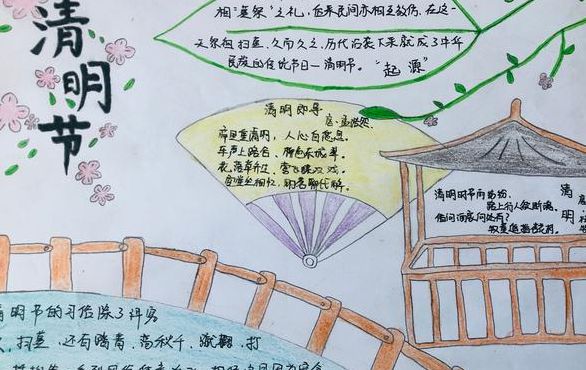 清明节
相"墓祭"之礼，后来民间亦相互效仿，在这一
天祭祖扫墓，久而久之，历代沿袭下来就成了中华
民族的传统节日—清明节。"起源"
清明即事
孟浩然
帝里重清明，人心自愁思。
车声上路合，柳色东城翠。
花落草齐生，莺飞蝶双戏。
空堂坐相忆，酌茗聊代醉。
清明时节雨纷纷，
路上行人欲断魂。
借问酒家何处有？
牧童遥指杏花村。
清
明
清明节的习俗除了讲究
扫墓，还有踏青、荡秋千、蹴鞠、打